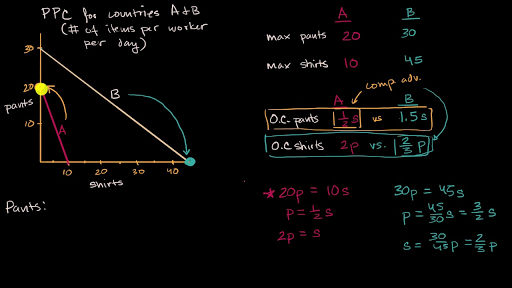 PPC for countries A & B
(# of items per worker
per day)
30
20
pants
10
A
B
10
20
30
40
shirts
Pants:
A B
max pants 20 30
max shirts 10 45
comp adv.
A B
O.C. pants 1/2 s vs 1.5 s
O.C shirts 2p vs. 2/3 p
* 20p = 10s
p = 1/2 s
2p = s
30p = 45s
p = 45/30 s = 3/2 s
s = 30/45 p = 2/3 p